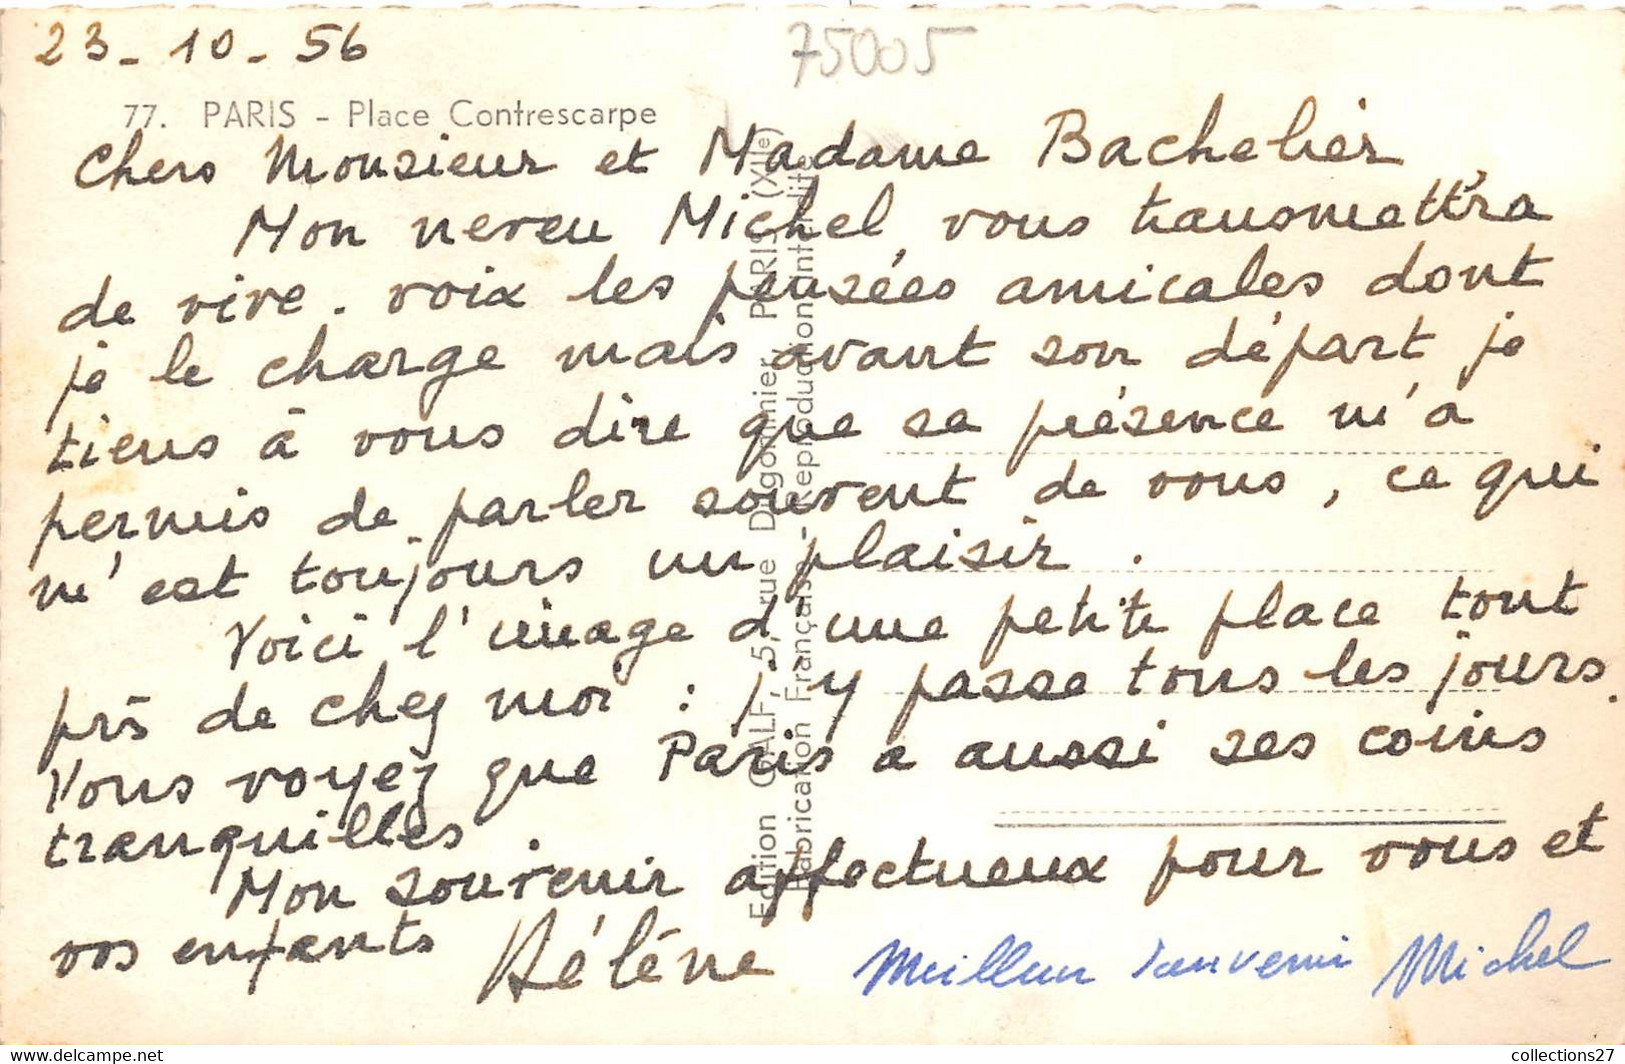 23-10-56
75005
77. PARIS - Place Contrescarpe
Chers Monsieur et Madame Bachelier,
Mon neveu Michel vous transmettra
de vive-voix les pensées amicales dont
je le charge mais avant son départ je
tiens à vous dire que sa présence m'a
permis de parler souvent de vous, ce qui
m'est toujours un plaisir.
Voici l'image d'une petite place tout
près de chez moi : j'y passe tous les jours.
Vous voyez que Paris a aussi ses coins
tranquilles.
Mon souvenir affectueux pour vous et
vos enfants Hélène
Meilleur souvenir Michel
Edition GALF, 5, rue Dugommier, PARIS (XIIe)
Fabrication Française - Reproduction interdite
www.delcampe.net
collections27